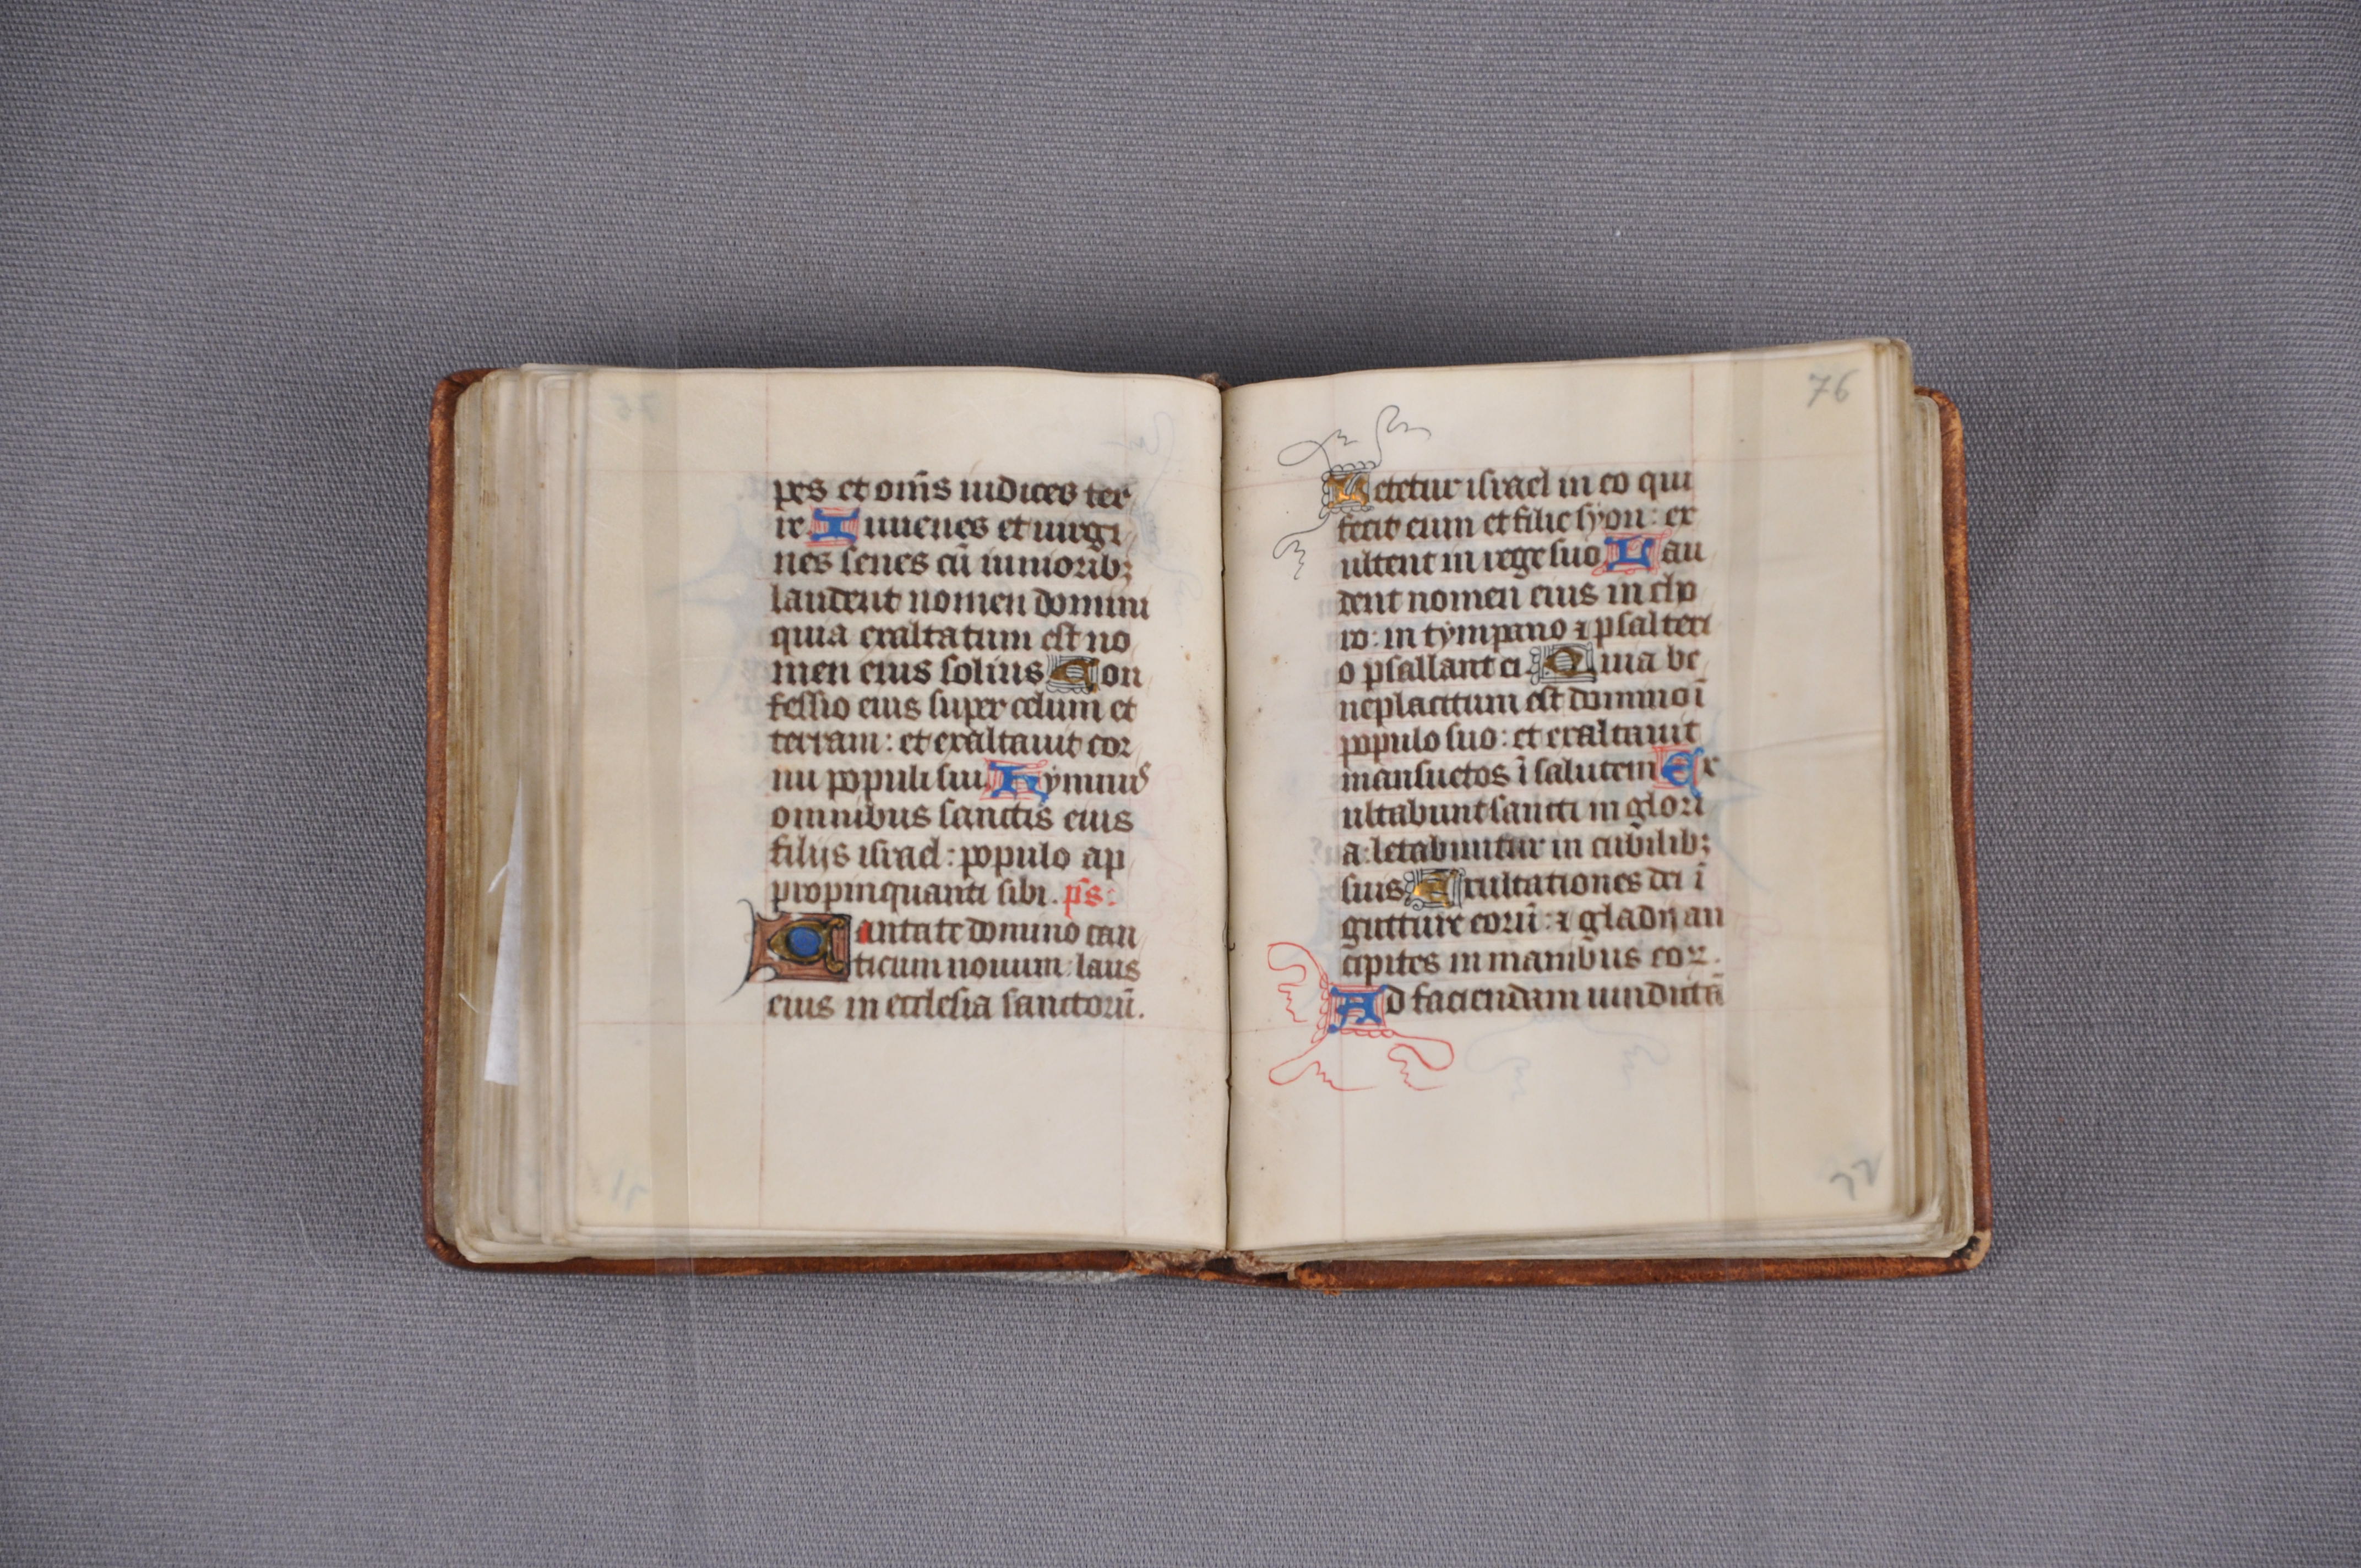 pes et om̄s iudices ter
re Iuuenes et uirgi
nes senes cū iuniorib;
laudent nomen domini
quia exaltatum est no
men eius solius Con
fessio eius super celum et
terram: et exaltauit cor
nu populi sui Hymnus
omnibus sanctis eius
filijs israel: populo ap
propinquanti sibi. p̄s:
Cantate domino can
ticum nouum: laus
eius in ecclesia sanctorū.
76
Letetur israel in eo qui
fecit eum et filie syon: ex
ultent in rege suo Lau
dent nomen eius in cho
ro: in tympano ⁊ psalteri
o psallant ei. Quia be
neplacitum est domino ī
populo suo: et exaltauit
mansuetos ī salutem Ex
ultabunt sancti in glori
a: letabuntur in cubilib;
suis Exultationes dei ī
gutture eorū: ⁊ gladij an
cipites in manibus eoꝝ.
Ad faciendam uindictā